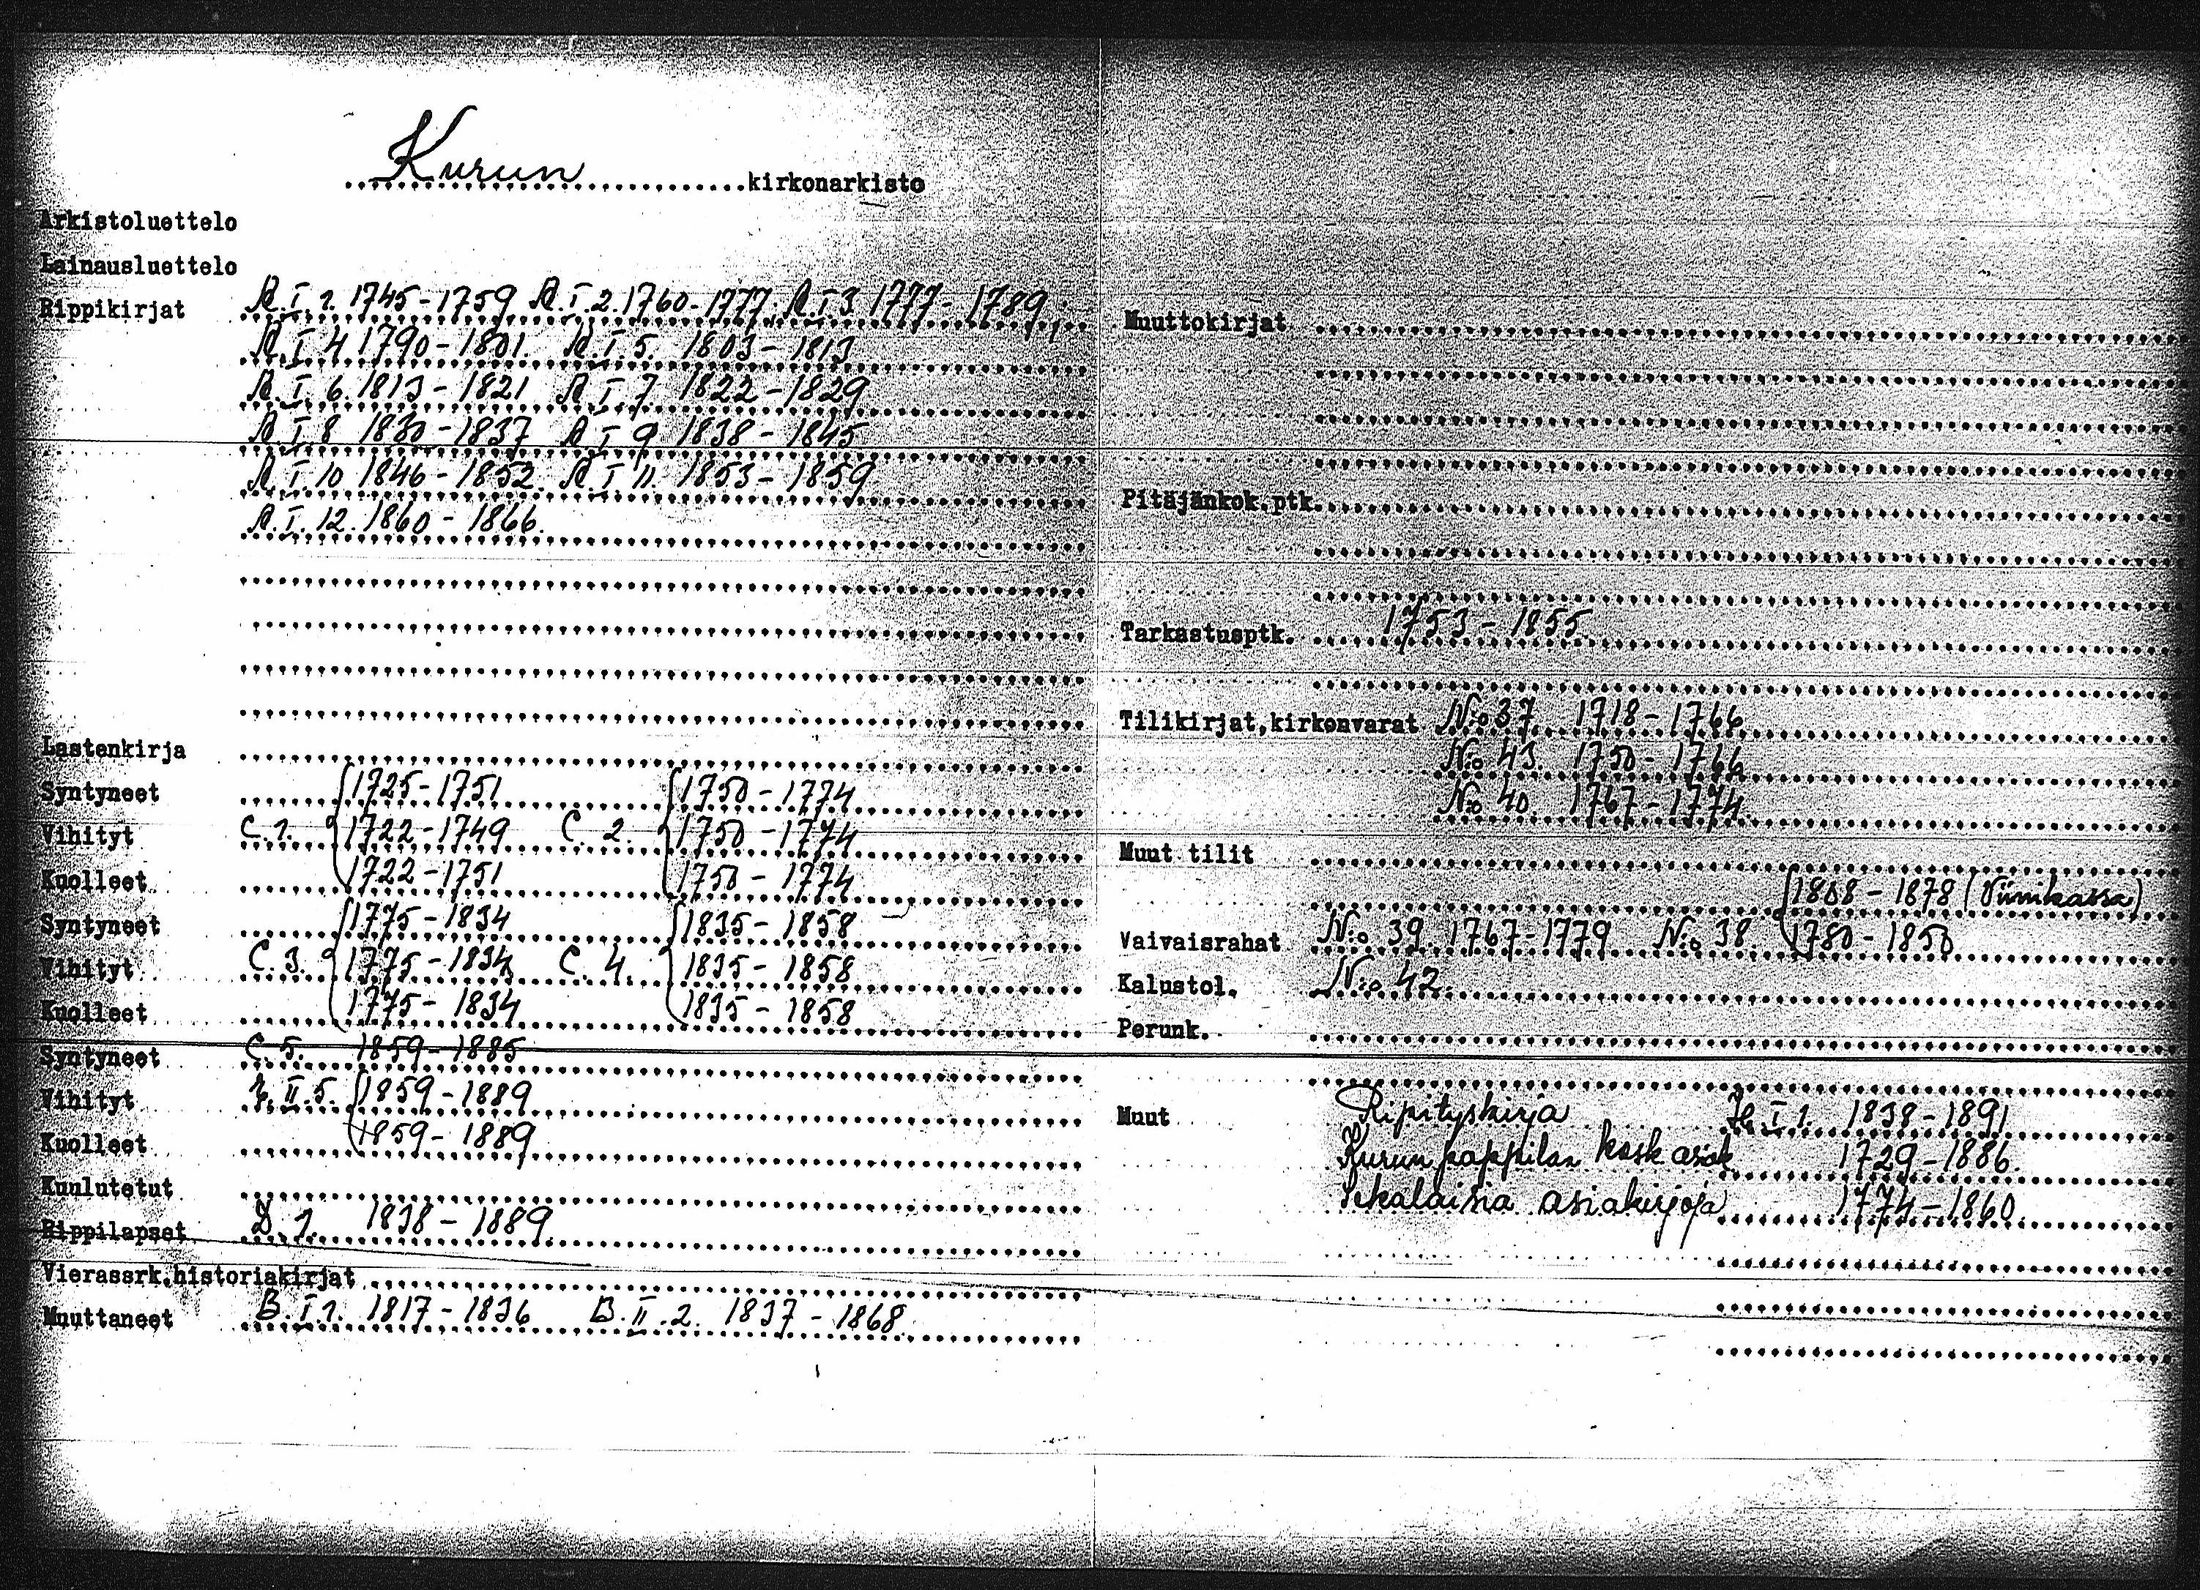 Kurun kirkonarkisto
Arkistoluettelo
Lainausluettelo
Rippikirjat A.I.1. 1745-1759 A.I.2. 1760-1777; A.I.3. 1777-1789;
A.I.4 1790-1801. A.I.5. 1803-1813
A.I.6. 1813-1821 A.I.7. 1822-1829
A.I.8 1830-1837 A.I.9 1838-1845
A.I.10 1846-1852. A.I.11. 1853-1859
A.I.12. 1860-1866.
Lastenkirja
Syntyneet 1725-1751 1750-1774
Vihityt C.1. 1722-1749 C.2. 1750-1774
Kuolleet 1722-1751 1750-1774
Syntyneet 1775-1834 1835-1858
Vihityt C.3. 1775-1834 C.4. 1835-1858
Kuolleet 1775-1834 1835-1858
Syntyneet C.5. 1859-1885
Vihityt II.5. 1859-1889
Kuolleet 1859-1889
Kuulutetut
Rippilapset D.1. 1838-1889.
Vierassrk.historiakirjat
Muuttaneet B.I.1. 1817-1836 B.II.2. 1837-1868.
Muuttokirjat
Pitäjänkok.ptk.
Tarkastusptk. 1753-1855.
Tilikirjat,kirkonvarat N:o 37. 1718-1766
N:o 43. 1750-1766
N:o 40. 1767-1774.
Muut tilit
1808-1878 (Viinikassa)
Vaivaisrahat N:o 39 1767-1779 N:o 38. 1780-1850
Kalustol. N:o 42.
Perunk.
Muut Ripityskirja I 1. 1838-1891
Kurun pappilan kosk asiak. 1729-1886.
Sekalaisia asiakirjoja 1774-1860.